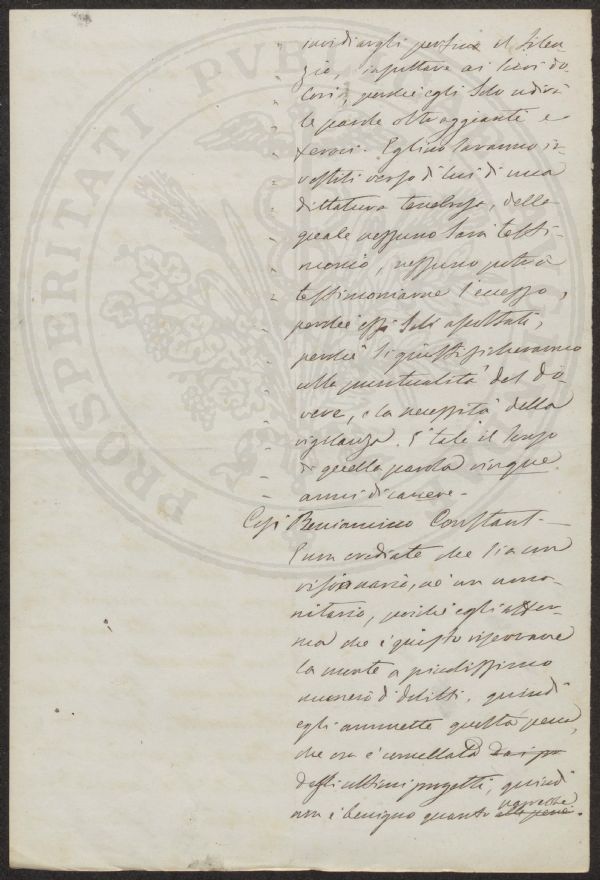 invidiargli perfino il silen-
zio, insultare ai suoi do-
lori, perché egli solo udirà
le parole oltraggianti e
feroci. Eglino saranno in-
vestiti verso di lui di una
dittatura tenebrosa, della
quale nessuno sarà testi-
monio, nessuno potrà
testimoniarne l'eccesso,
perché essi soli ascoltati,
perché si giustificheranno
colla puntualità del do-
vere, e la necessità della
vigilanza. E tale il senso
di quella parola cinque
anni di carcere.
Così Beniamino Constant.
E non crediate che sia un
visionario, né un uma-
nitario, perché egli affer-
ma che è giusto riservare
la morte a piccolissimo
numero di delitti, quindi
egli ammette questa pena,
che ora è cancellata
dagli ultimi progetti, quindi
non è benigno quanto
PROSPERITATI PVBLICAE